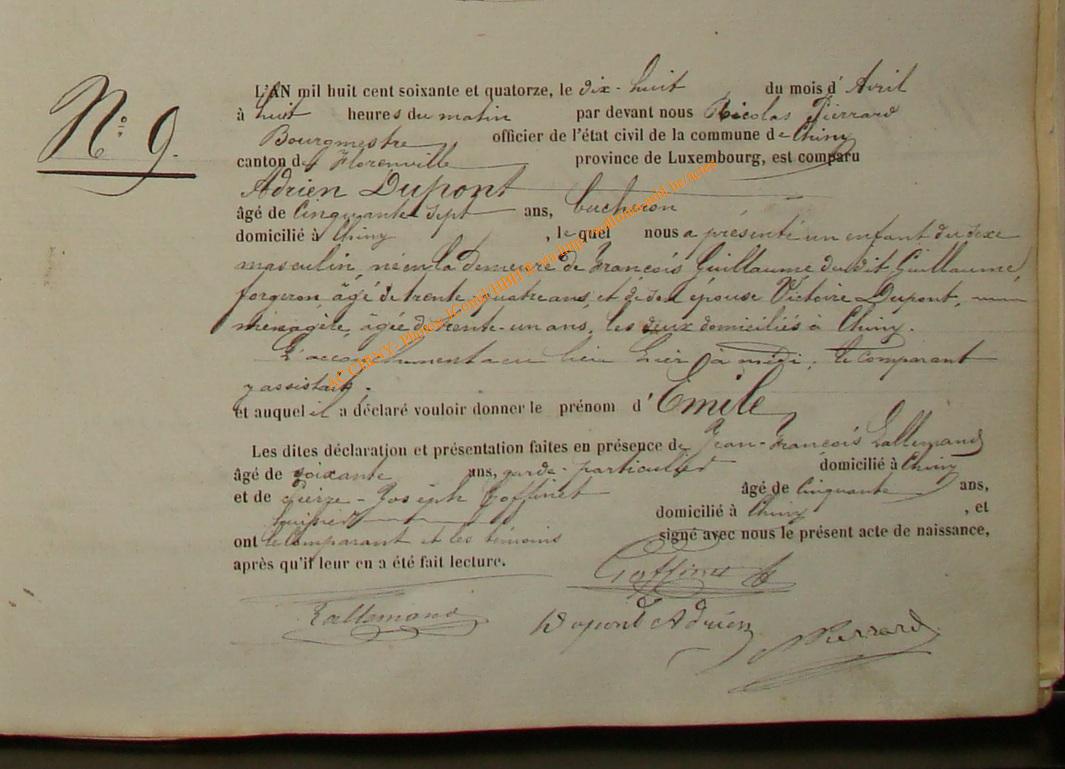 N° 9.
L'AN mil huit cent soixante et quatorze, le dix-huit du mois d'Avril
à huit heures du matin par devant nous Nicolas Pierrard
Bourgmestre officier de l'état civil de la commune de Chiny
canton de Florenville province de Luxembourg, est comparu
Adrien Dupont
âgé de Cinquante sept ans, bucheron
domicilié à Chiny, lequel nous a présenté un enfant du sexe
masculin, né en la demeure de François Guillaume dudit Guillaume,
forgeron, âgé de trente quatre ans, et de son épouse Victoire Dupont,
ménagère, âgée de trente-un ans, les deux domiciliés à Chiny.
L'accouchement a eu lieu hier à midi, le comparant
y assistait.
et auquel il a déclaré vouloir donner le prénom d'Emile
Les dites déclaration et présentation faites en présence de Jean-François Lallemand
âgé de soixante ans, garde-particulier domicilié à Chiny
et de Pierre-Joseph Goffinet âgé de Cinquante ans,
domicilié à Chiny, et
ont le Comparant et les témoins signé avec nous le présent acte de naissance,
après qu'il leur en a été fait lecture.
Goffinet
Lallemand Dupont Adrien Pierrard